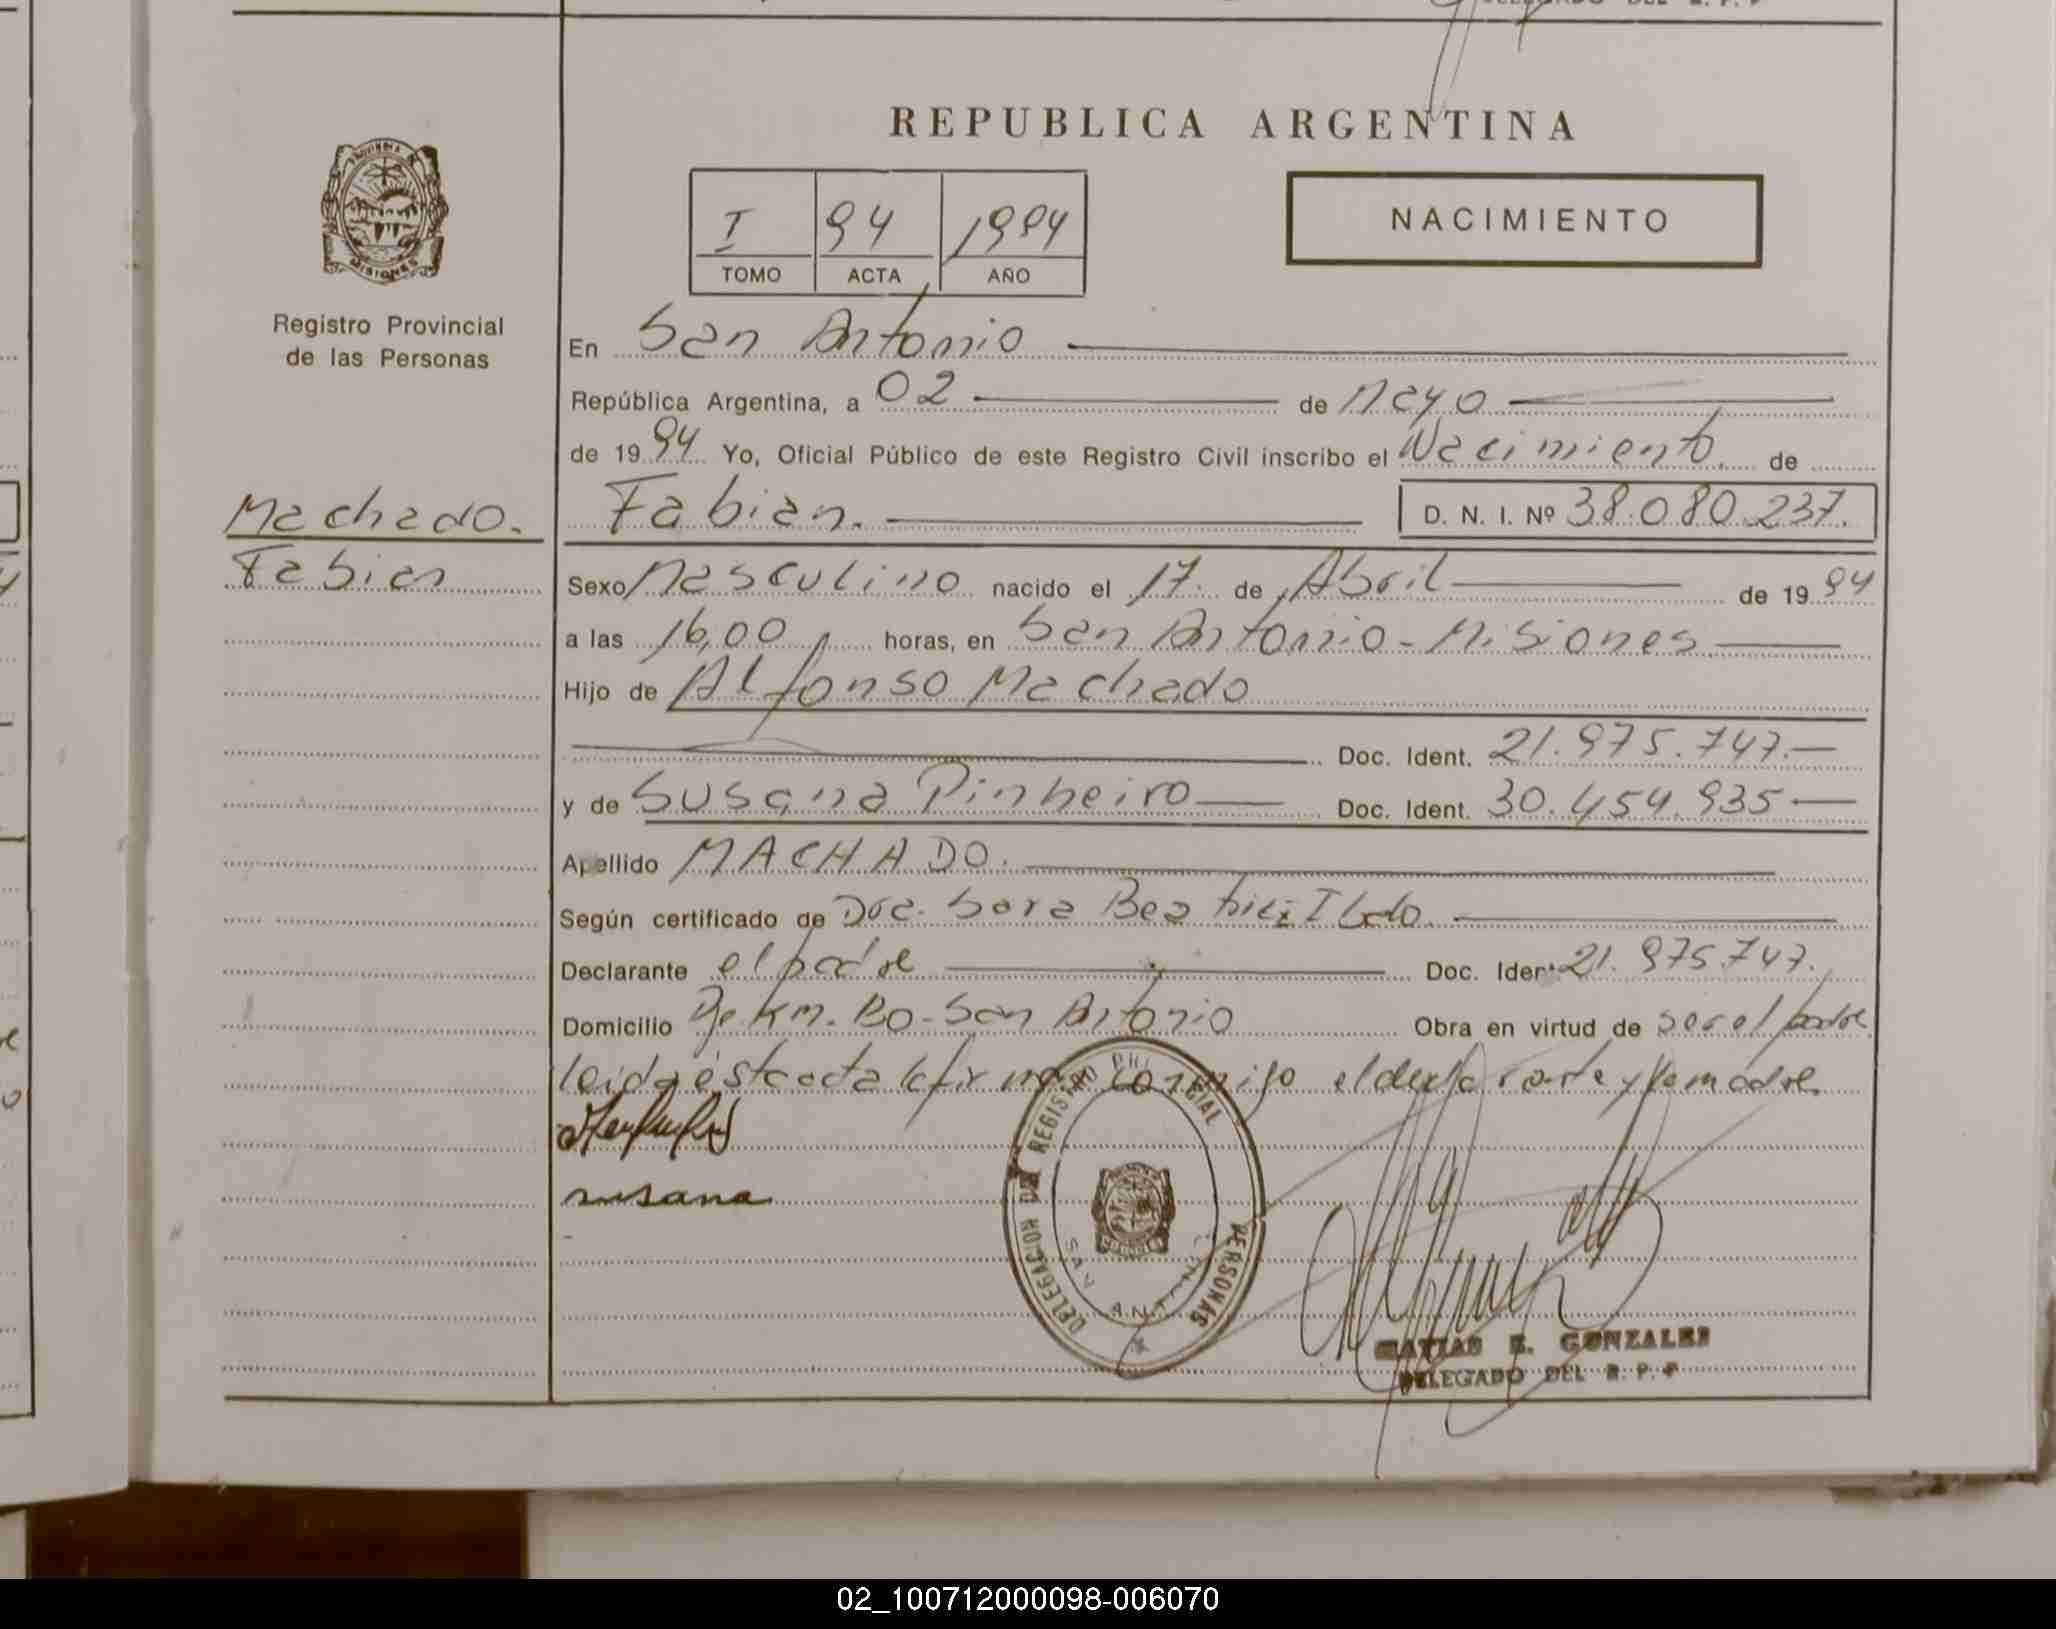 DELEGADO DEL R. P. P
REPUBLICA ARGENTINA
PROVINCIA DE
MISIONES
Registro Provincial
de las Personas
I 94 1994
TOMO ACTA AÑO
NACIMIENTO
En San Antonio
República Argentina, a 02 de Mayo
de 1994 Yo, Oficial Público de este Registro Civil inscribo el Nacimiento de
Machado.
Fabian
Fabian. D. N. I. Nº 38.080.237.
Sexo Masculino nacido el 17. de Abril de 1994
a las 16,00 horas, en San Antonio - Misiones
Hijo de Alfonso Machado
Doc. Ident. 21.975.747.—
y de Susana Pinheiro Doc. Ident. 30.454.935—
Apellido MACHADO.
Según certificado de Dra. Sara Beatriz
Declarante el padre Doc. Ident. 21.975.747.
Domicilio Km. 80 - San Antonio Obra en virtud de ser el padre
leida esta acta la firman conmigo el declarante y la madre
susana
DELEGACION DEL REGISTRO PROVINCIAL
PERSONAS
SAN ANTONIO
MATIAS E. GONZALES
DELEGADO DEL R. P. P
02_100712000098-006070